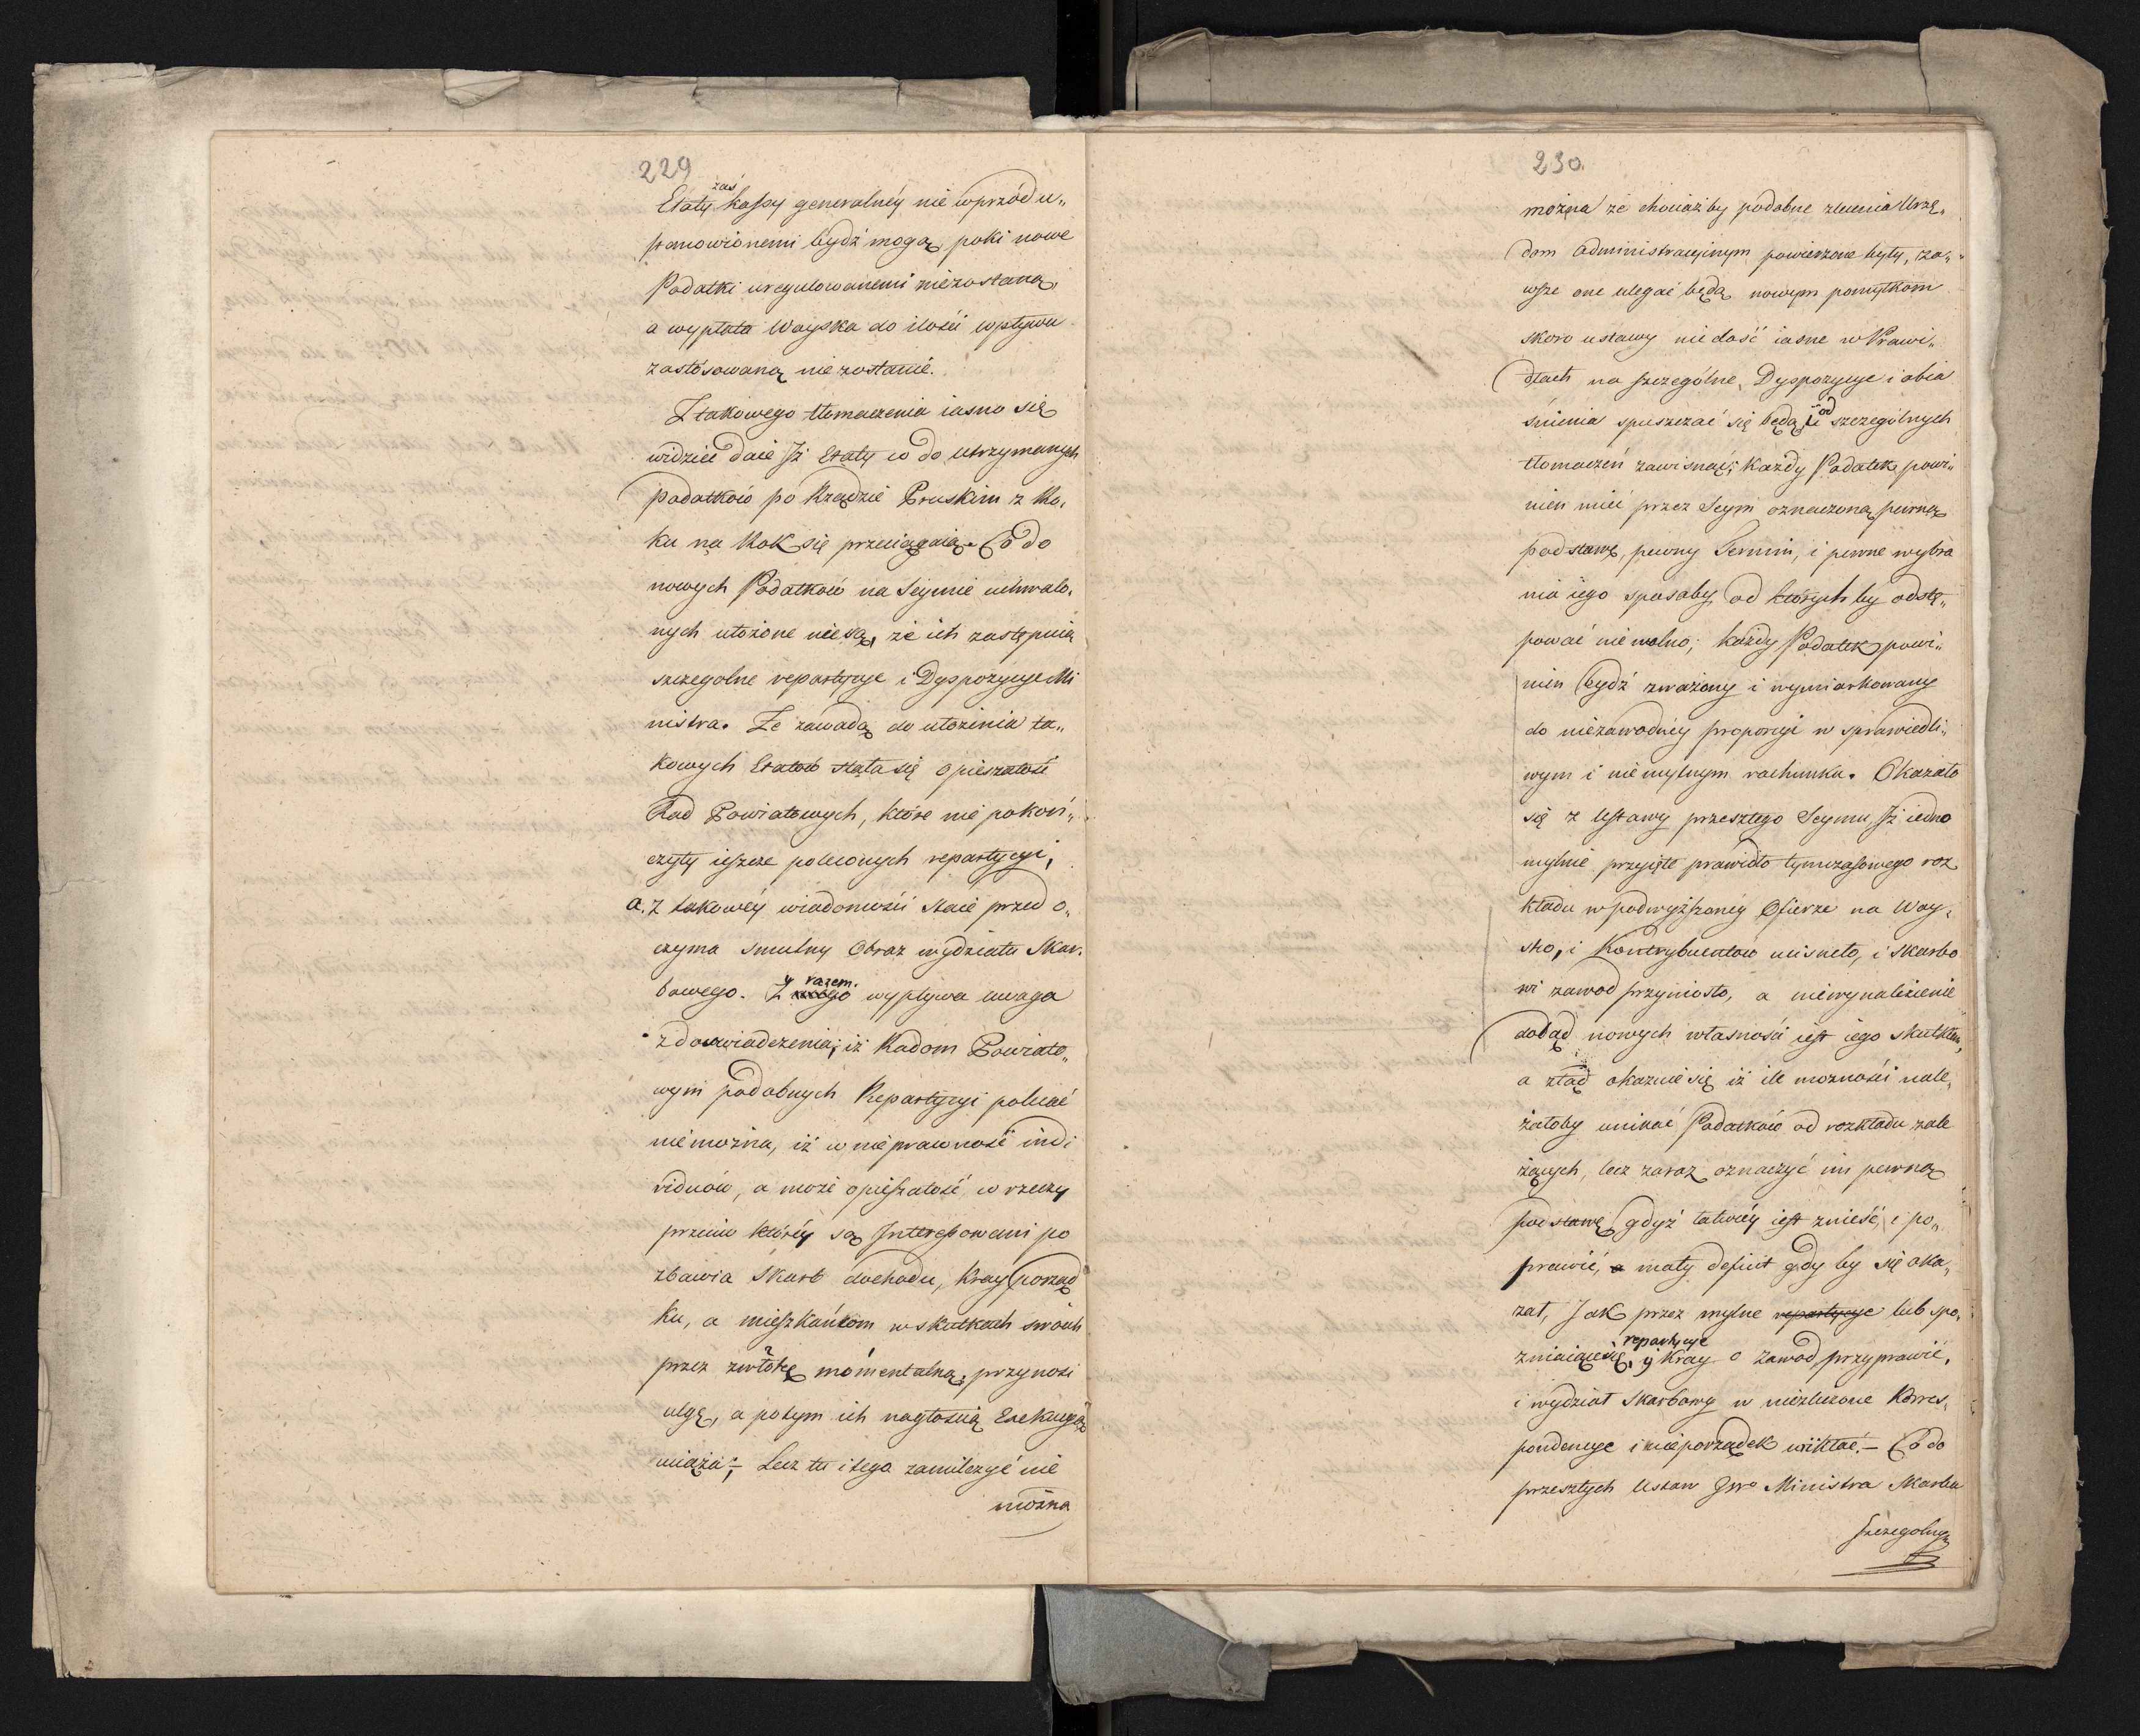 229
zaś
Etaty kassy generalnéy nie wprzód u„
stanowionemi bydź mogą, poki nowe
Podatki uregulowanemi niezostaną,
a wypłata Woyska do ilości wpływu
zastósowaną nie zostanie.
Z takowego tłomaczenia iasno się
widzieć daie Jż Etaty co do utrzymanych
podatków po Rządzie Pruskim z Ro„
ku na Rok się przeciągaią. Co do
nowych Podatków na Seymie uchwalo„
nych ułożone nie są, że ich zastępuią
szczegolne repartycye i Dyspozycye Mi
nistra. Że zawadą do ułożenia ta„
kowych Etatów stała się opieszałość
Rad Powiatowych, które nie pokoń„
czyły ieszcze poleconych repartycyi,
a. z takowéy wiadomości staie przed o„
czyma smutny Obraz wydziału Skar„
bowego. Z
y razem.
wypływa uwaga
z doświadczenia; iż Radom Powiato„
wym podobnych Repartycyi polecać
niemożna, iż w nieprawność indi
viduów, a może opieszałość w rzeczy
przeciw któréy są Interessowani po
zbawia Skarb dochodu, Kray porząd
ku, a mieszkańcom w skutkach swoich
przez zwłokę momentalną, przynosi
ulgę, a potym ich nagłością Exekucyą
uciąża; Lecz tu i tego zamilczyć nie
można
230.
można że chociażby podobne zlecenia Urzę„
dom administracyinym powierzone były, za„
wsze one ulegać będą nowym pomyłkom
skoro ustawy nie dość iasne w Prawi„
dłach na szczególne Dyspozycye i obia
śnienia spuszczać się będą, i
od
szczególnych
tłomaczeń zawisnąć; Każdy Podatek powi„
nien mieć przez Seym oznaczoną pewną
podstawę, pewny Termin, i pewne wybra
nia iego sposoby, od których by odstę„
pować nie wolno; każdy Podatek powi„
nien bydź zważony i wymiarkowany
do niezawodnéy proporcyi w sprawiedli„
wym i nie mylnym rachunku. Okazało
się z Ustawy przeszłego Seymu, Jż iedno
mylnie przyięte prawidło tymczasowego roz
kładu w podwyższonéy Ofierze na Woy„
sko, i Kontrybuentów ucisnęło, i skarbo
wi zawod przyniosło, a niewynalezienie
dotąd nowych własności iest iego skutkiem,
a ztąd okazuie się iż ile możności nale„
żałoby unikać Podatków od rozkładu zale
żących, lecz zaraz oznaczyć im pewną
podstawę, gdyż łatwiéy iest znieść, i po„
prawić, a mały deficit gdy by się oka„
zał, Jak przez mylne repartycye lub spo„
repartycye
zniaiące się, y Kray o zawod przyprawić,
i wydział Skarbowy w niezliczone Korres„
pondencye i nieporządek wikłać. — Co do
przeszłych Ustaw Jwo Ministra Skarbu
szczegolną